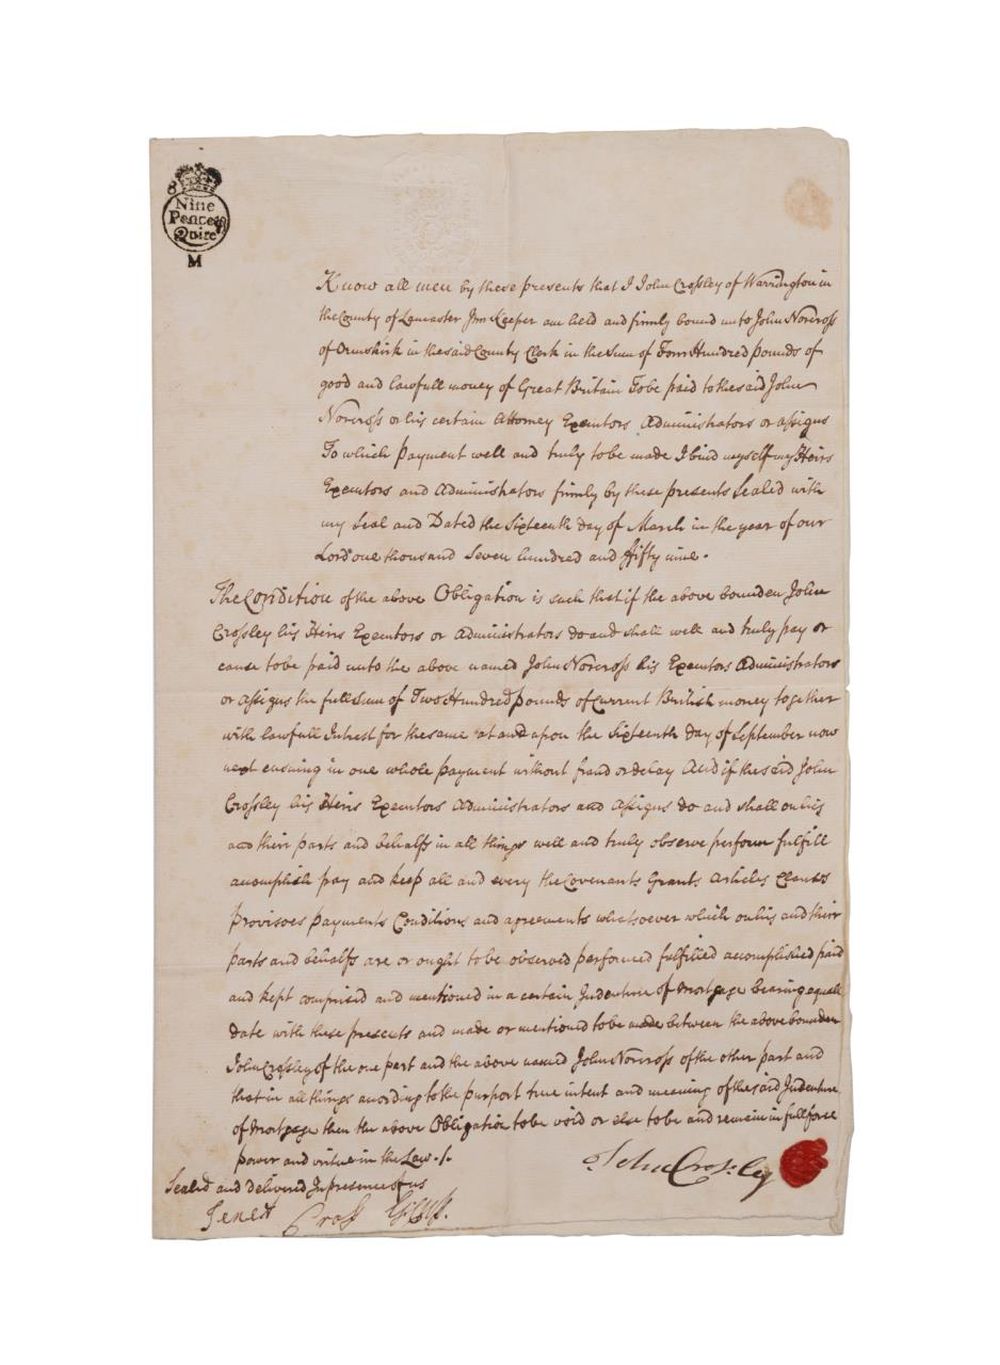 Nine
Pence
Quire
M
Know all men by these presents that I John Crossley of Warrington in
the County of Lancaster Inn Keeper am held and firmly bound unto John Norcross
of Ormskirk in the said County Clerk in the Sum of Four Hundred pounds of
good and lawfull money of Great Britain To be paid to the said John
Norcross or his certain Attorney Executors Administrators or assigns
To which payment well and truly to be made I bind myself my Heirs
Executors and Administrators firmly by these presents Sealed with
my Seal and Dated the Sixteenth day of March in the year of our
Lord one thousand Seven hundred and fifty nine.
The Condition of the above Obligation is such that if the above bounden John
Crossley his Heirs Executors or Administrators do and shall well and truly pay or
cause to be paid unto the above named John Norcross his Executors Administrators
or assigns the full Sum of Two Hundred pounds of Current British money together
with lawfull Intrest for the same at and upon the Sixteenth day of September now
next ensuing in one whole payment without fraud or delay And if the said John
Crossley his Heirs Executors Administrators and Assigns do and shall on his
and their parts and behalfs in all things well and truly observe perform fulfill
accomplish pay and keep all and every the Covenants Grants Articles Clauses
Provisoes Payments Conditions and agreements whatsoever which on his and their
parts and behalfs are or ought to be observed performed fulfilled accomplished paid
and kept comprised and mentioned in a certain Indenture of Mortgage bearing equall
date with these presents and made or mentioned to be made between the above bounden
John Crossley of the one part and the above named John Norcross of the other part and
that in all things according to the purport true intent and meaning of the said Indenture
of Mortgage then the above Obligation to be void or else to be and remain in full force
power and virtue in the Law.
John Crossley
Sealed and delivered In presence of us
Cross